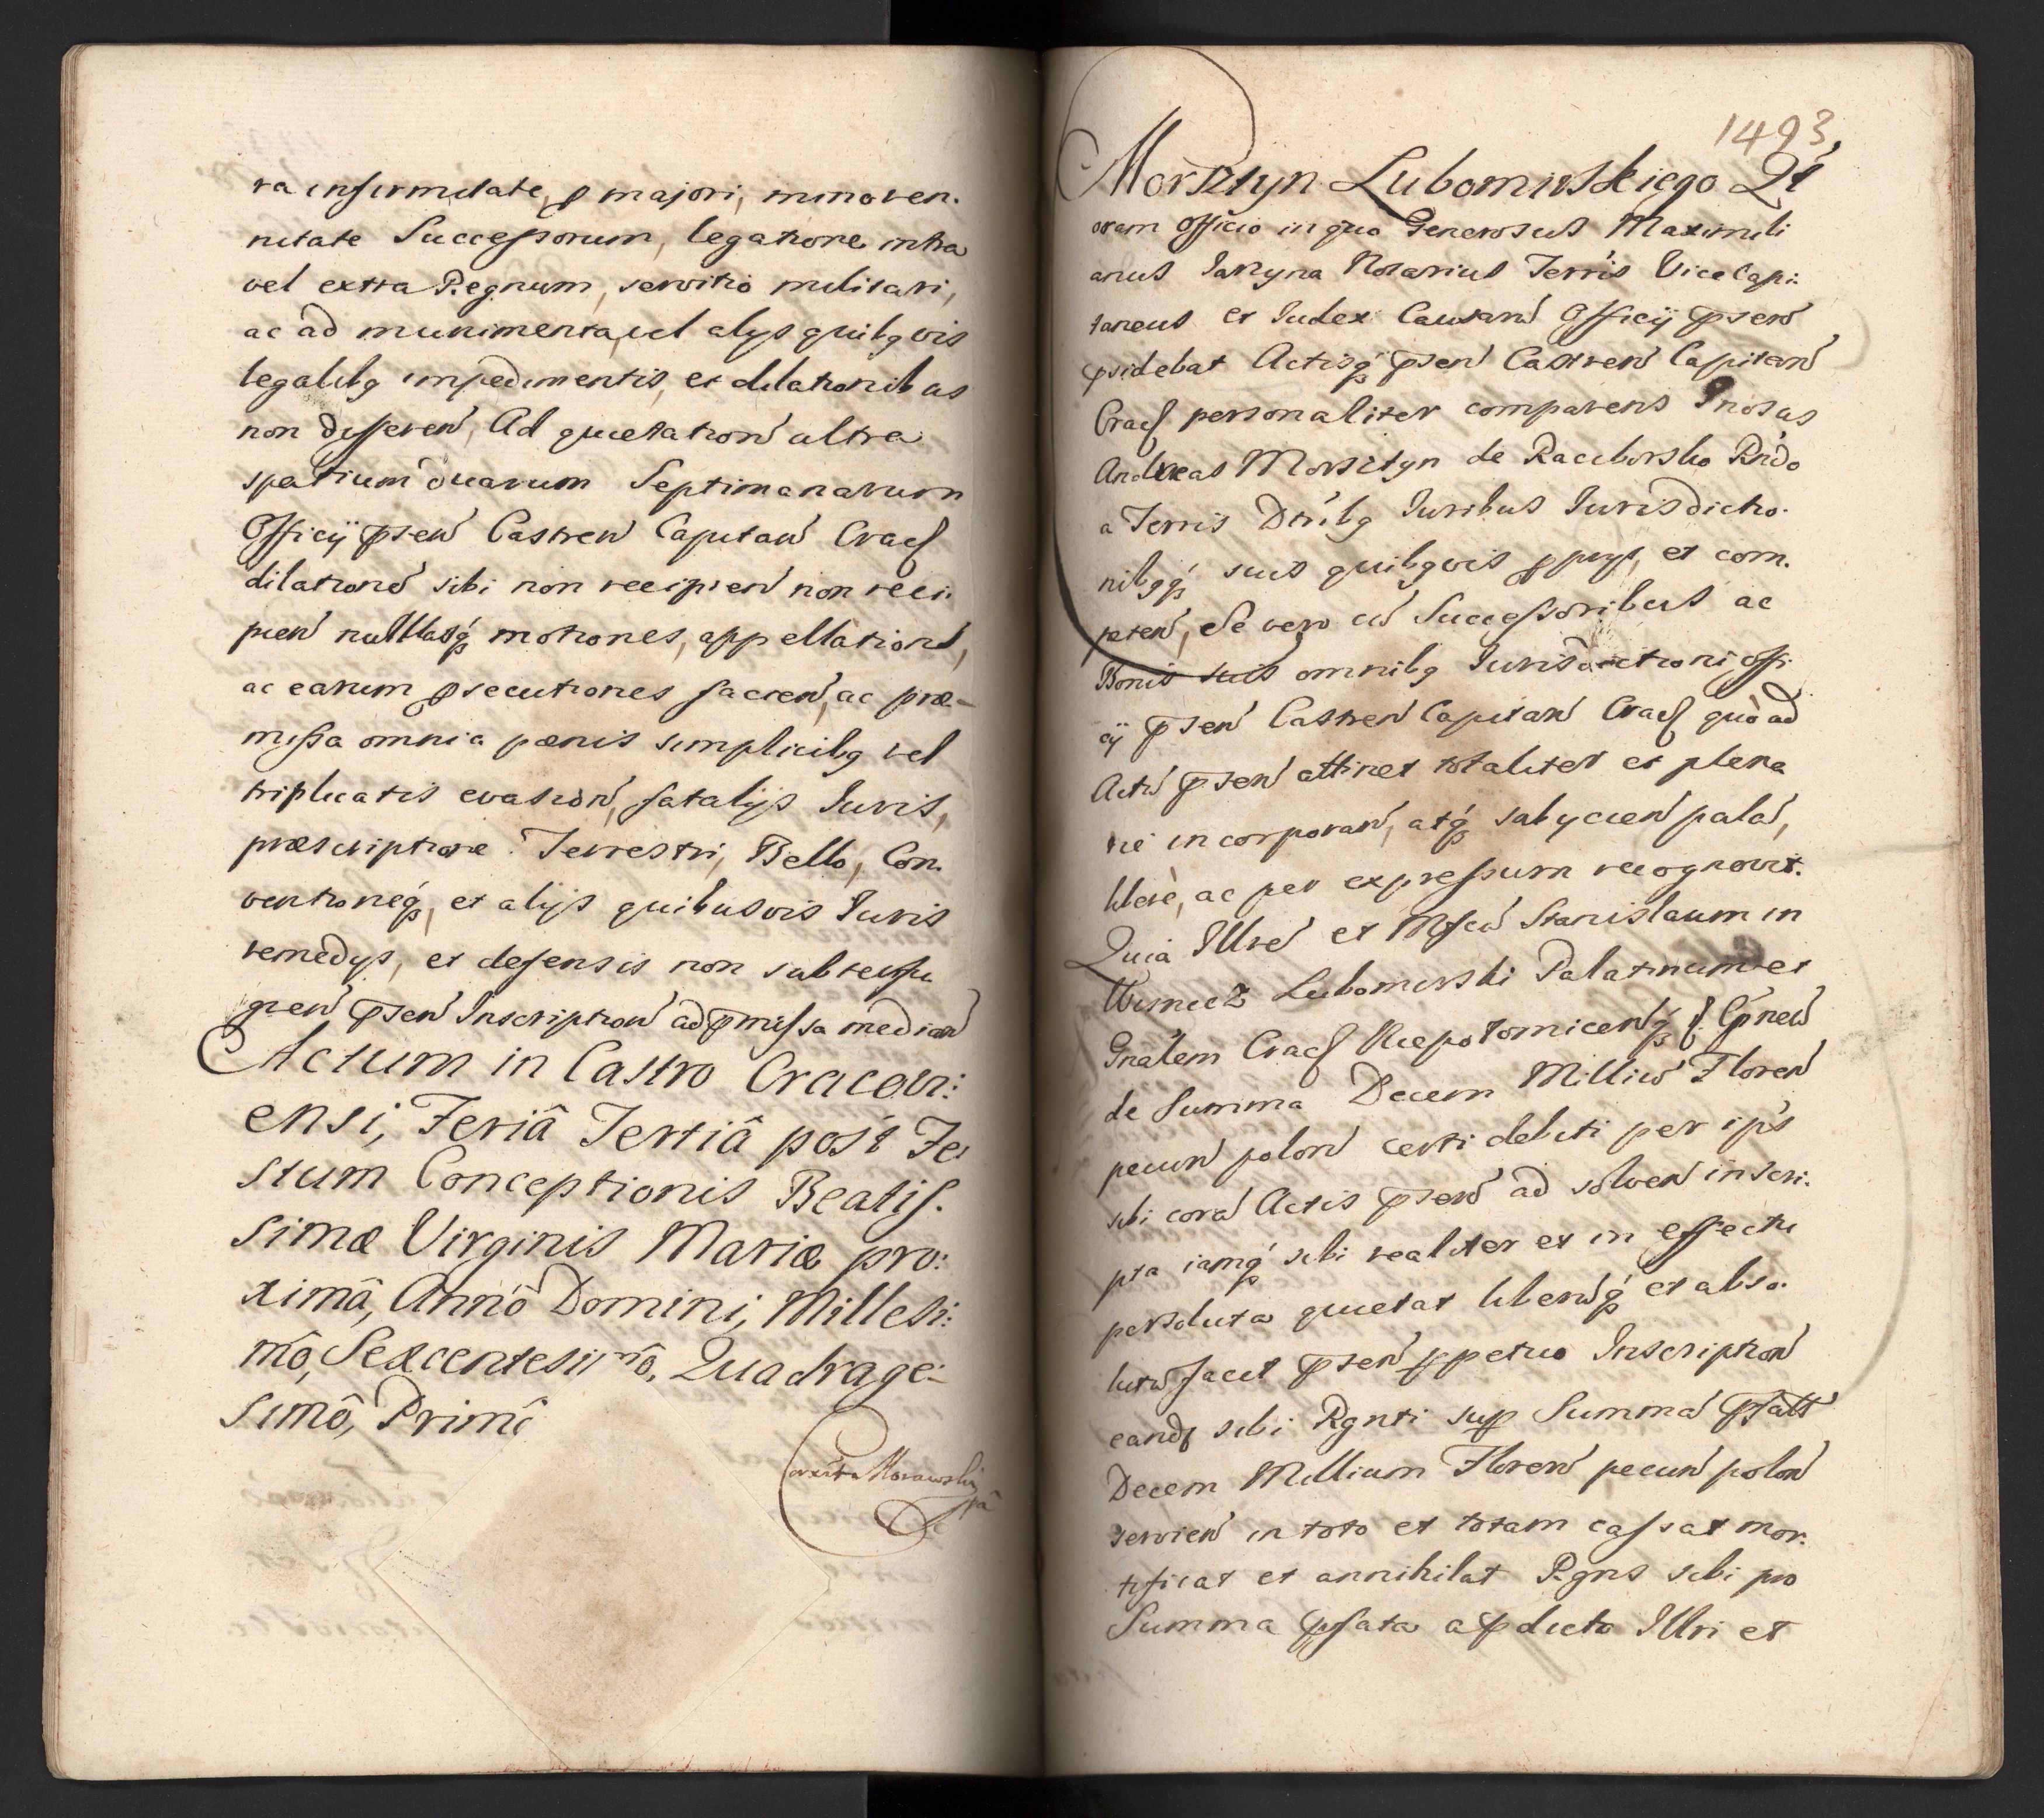 ra infirmitate, p majori, minoven.
nitate Successorum, legatione intra
vel extra Regnum, servitio militari,
ac ad munimenta, vel alijs quibqvis
legalibq impedimentis, et dilationibus
non differen, Ad quietation ultra
spatium duarum Septimanarum
Officij psen Castren Capitan Crac
dilatione sibi non recipien non reci
pien nullasq motiones, appellation,
ac earum psecutiones facien, ac præ-
missa omnia pænis simplicibq vel
triplicatis evasion, fatalijs Iuris,
præscriptione Terrestri, Bello, Con.
ventioneq, et alijs quibusvis Iuris
remedijs, et defensis non subterfu
gien psen Inscription ad pmissa median
Actum in Castro Cracovi:
ensi, Feriâ Tertiâ post Fe
stum Conceptionis Beatis.
simæ Virginis Mariæ pro:
ximâ, Annô Domini, Millesi:
mô, Sexcentesimô, Quadrage:
simô, Primô
Morawski
1493
Morsztyn Lubomirskiego Qt
oram Officio in quo Generosus Maximili
anus Iarzyna Notarius Terris Vice Capi:
taneus et Iudex Causarū Officij psen
psidebat Actisq psen Castren Capitan
Crac personaliter comparens Gnosus
Andreas Morsztyn de Raciborsko Rndo
a Terris Dtribq Iuribus Iurisdictio.
nibqq suis quibqvis ppijs, et com.
peten, Se vero cū Successoribus ac
Bonis suis omnibq Iurisdictioni Offi
cij psen Castren Capitan Crac quò ad
Actū psen attinet totaliter et plena
rie incorporan, atq subijcien palā,
liberè, ac per expressum recognovit.
Quia Illrē et Mfcū Stanislaum in
Wisnicz Lubomirski Palatinum et
Gnalem Crac Niepołomicenq Cpneū
de Summa Decem Milliū Floren
pecun polon certi debiti per ips
sibi corā Actis psen ad solven inscri.
pta iamq sibi realiter et in effectu
persoluta quietat liberūq et abso.
lutū facit psen ppetuo Inscription
eandē sibi Rgnti sup Summā psatt
Decem Millium Floren pecun polon
servien in toto et totam cassat mor.
tificat et annihilat Rgns sibi pro
Summa psata a pdicto Illri et